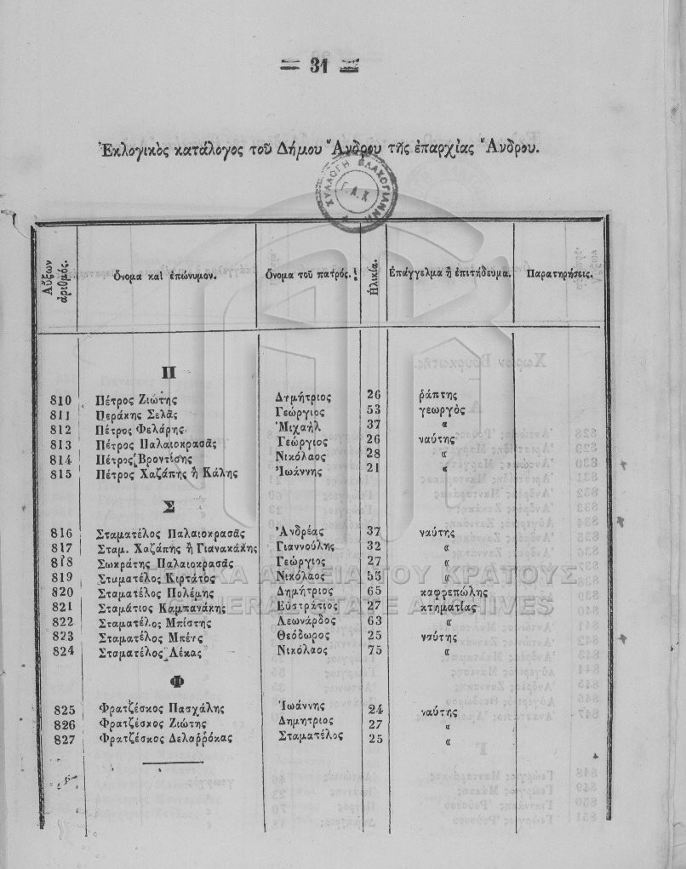 31
Ἐκλογικὸς κατάλογος τοῦ Δήμου Ἄνδρου τῆς ἐπαρχίας Ἄνδρου.
ΣΥΛΛΟΓΗ ΒΛΑΧΟΓΙΑΝΝΗ Γ.Α.Κ
Αὔξων ἀριθμός. Ὄνομα καὶ ἐπώνυμον. Ὄνομα τοῦ πατρός. Ἡλικία. Ἐπάγγελμα ἢ ἐπιτήδευμα. Παρατηρήσεις.
Π
810 Πέτρος Ζιώτης Δημήτριος 26 ῥάπτης
811 Περάκης Σελᾶς Γεώργιος 53 γεωργὸς
812 Πέτρος Φελάρης Μιχαὴλ 37 «
813 Πέτρος Παλαιοκρασᾶς Γεώργιος 26 ναύτης
814 Πέτρος Βροντίσης Νικόλαος 28 «
815 Πέτρος Χαζάπης ἢ Κάλης Ἰωάννης 21 «
Σ
816 Σταματέλος Παλαιοκρασᾶς Ἀνδρέας 37 ναύτης
817 Σταμ. Χαζάπης ἢ Γιανακάκης Γιαννούλης 32 «
818 Σωκράτης Παλαιοκρασᾶς Γεώργιος 27 «
819 Σταματέλος Κιρτάτος Νικόλαος 55 «
820 Σταματέλος Πολέμης Δημήτριος 65 καφρεπώλης
821 Σταμάτιος Καμπανάκης Εὐστράτιος 27 κτηματίας
822 Σταματέλος Μπίστης Λεωνάρδος 63 «
823 Σταματέλος Μπένς Θεόδωρος 25 ναύτης
824 Σταματέλος Λέκας Νικόλαος 75 «
Φ
825 Φρατζέσκος Πασχάλης Ἰωάννης 24 ναύτης
826 Φρατζέσκος Ζιώτης Δημήτριος 27 «
827 Φρατζέσκος Δελαῤῥόκας Σταματέλος 25 «
ΑΡΧΕΙΑ ΤΟΥ ΚΡΑΤΟΥΣ
GENERAL STATE ARCHIVES